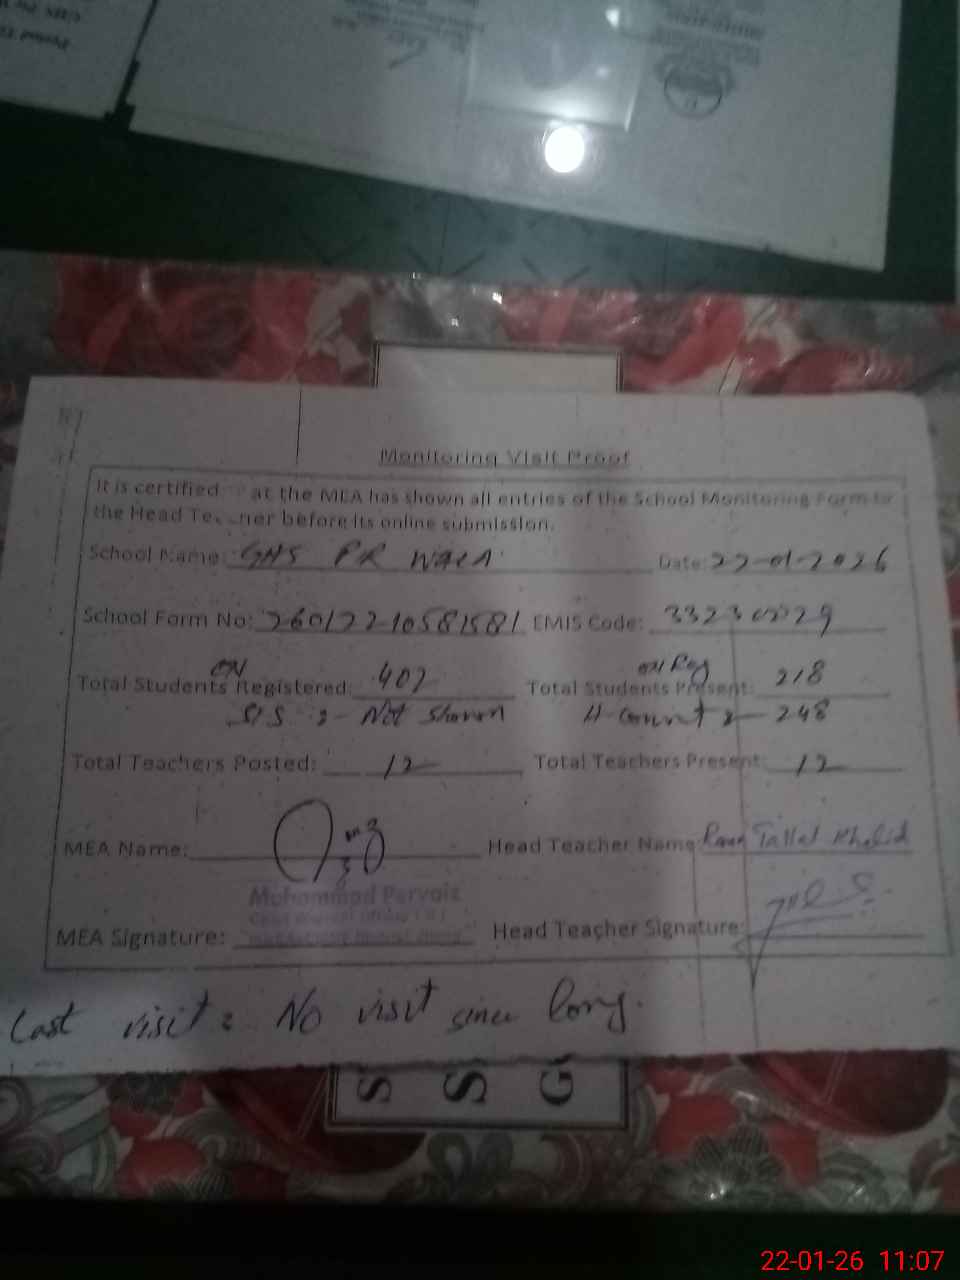 Monitoring Visit Proof
It is certified at the MEA has shown all entries of the School Monitoring Form to
the Head Te ner before its online submission.
School Name: GHS PR WALA Date: 22-01-2026
School Form No: 26012210581581 EMIS Code:
ON ON Reg
Total Students Registered: 402 Total Students Present: 218
SIS :- Not Shown H-Count :- 248
Total Teachers Posted: 12 Total Teachers Present: 12
MEA Name: Head Teacher Name: Rana Tallal Khalid
Muhammad Pervaiz
MEA Signature: Head Teacher Signature:
Last visit: No visit since long.
S S G
22-01-26 11:07